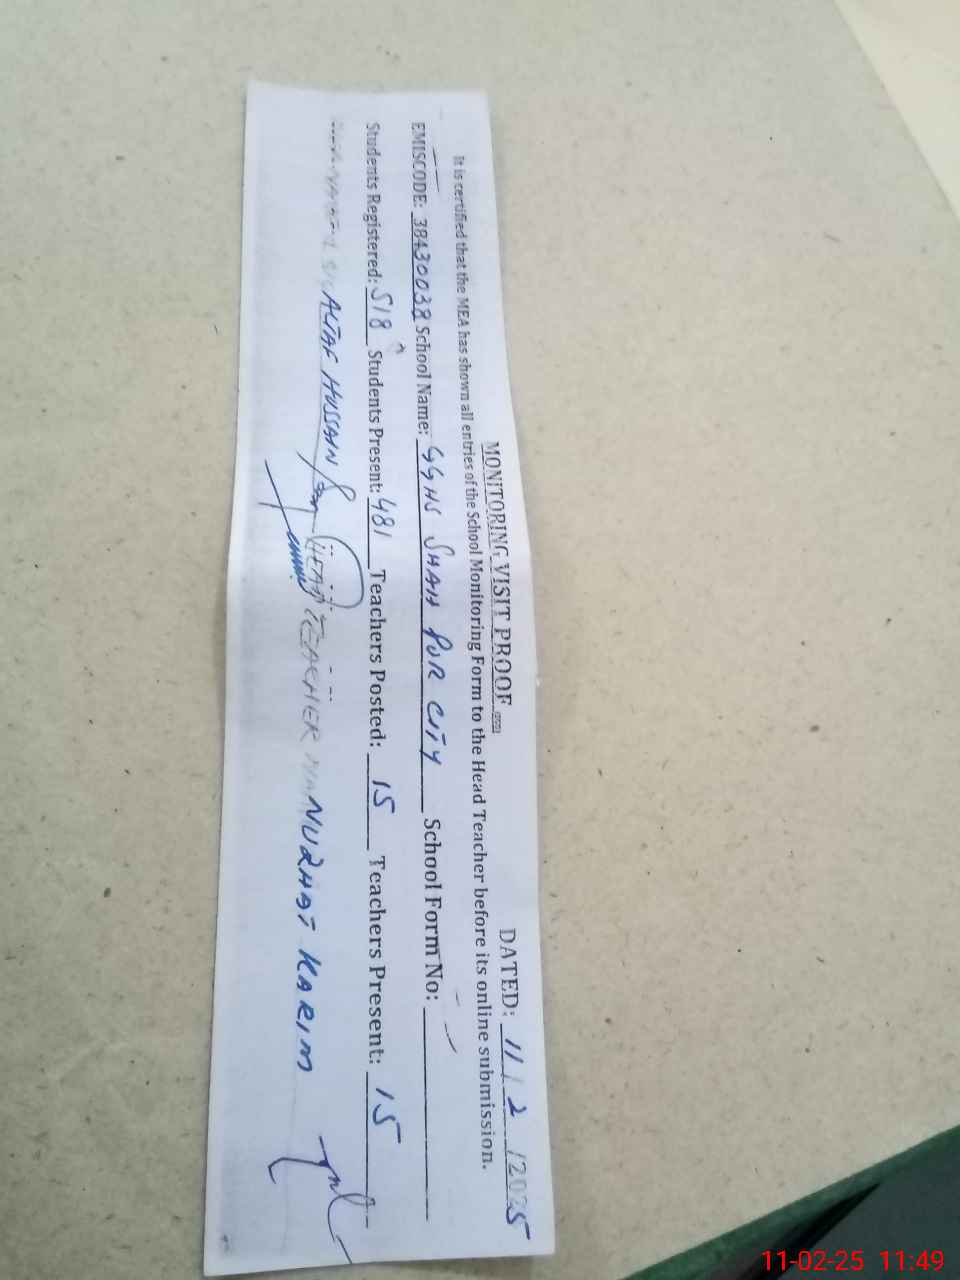 MONITORING VISIT PROOF
DATED: 11/2/2025
It is certified that the MEA has shown all entries of the School Monitoring Form to the Head Teacher before its online submission.
EMISCODE: 38430038 School Name: GGHS SHAH PUR CITY School Form No:
Students Registered: 518 Students Present: 481 Teachers Posted: 15 Teachers Present: 15
ALTAF HUSSAIN HEAD TEACHER NUZHAT KARIM
11-02-25 11:49